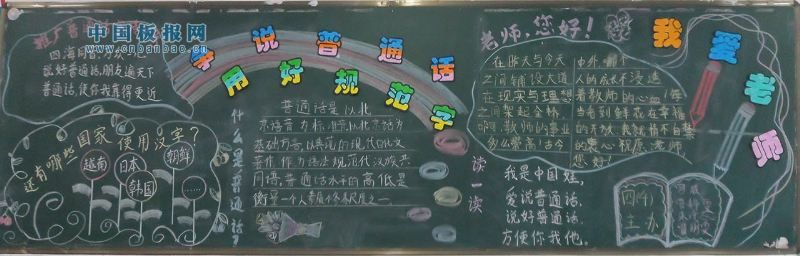 中国板报网
www.cnbanbao.cn
四海同音,万众一心
说好普通话,朋友遍天下
普通话,使你我靠得更近
还有哪些国家使用汉字?
越南
日本
韩国
朝鲜
……
说普通话
用好规范字
什么是普通话?
普通话是以北
京语音为标准音,以北京话为
基础方言,以典范的现代白话文
著作作为语法规范的汉民共
同语,普通话水平的高低是
衡量一个人素质修养尺度之一
读一读
我是中国娃,
爱说普通话,
说好普通话,
方便你我他。
老师,您好!
在昨天与今天
之间铺设大道
在现实与理想
之间架起金桥
啊,教师的事业
多么崇高!古今
中外,哪个
人的成长不浸透
着教师的心血!每
当看到鲜花在幸福
您好!
我爱老师
四(1)
主办